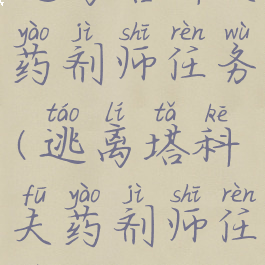 yào jì shī rèn wù
药剂师任务
táo lí tǎ kē
(逃离塔科
fū yào jì shī rèn
夫药剂师任